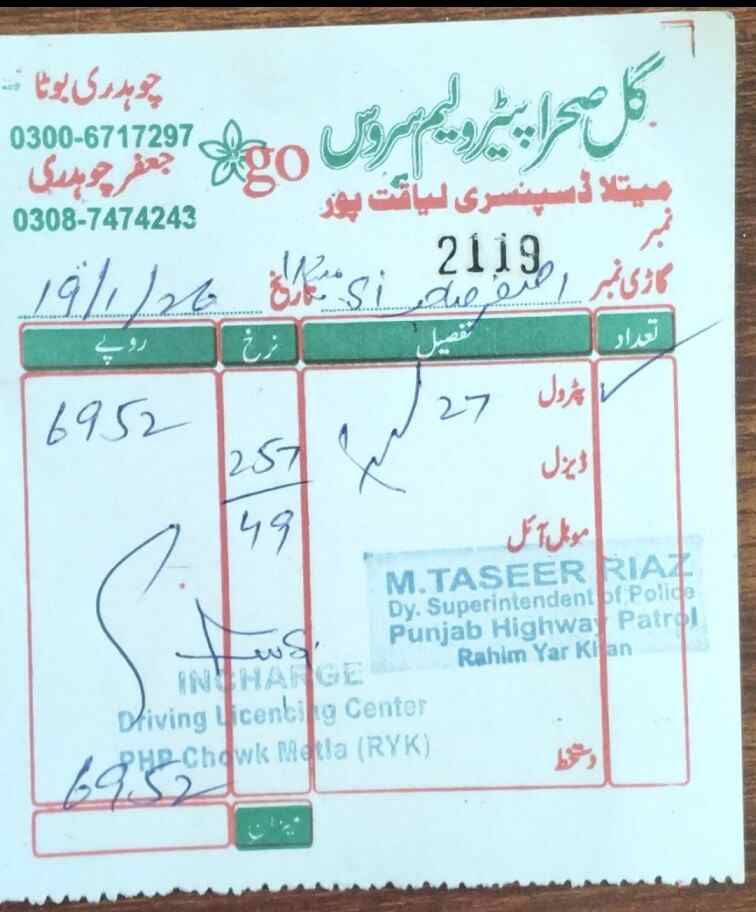 گل صحرا پیٹرولیم سروس
go
چوہدری بوٹا
0300-6717297
جعفر چوہدری
0308-7474243
میتلا ڈسپنسری لیاقت پور
نمبر 2119
گاڑی نمبر SI
تاریخ 19/1/26
تعداد تفصیل نرخ روپے
پٹرول 27 لیٹر 6952
ڈیزل 257
موبل آئل 49
M.TASEER RIAZ
Dy. Superintendent of Police
Punjab Highway Patrol
Rahim Yar Khan
INCHARGE
Driving Licencing Center
PHP Chowk Metla (RYK)
دستخط
6952
میزان